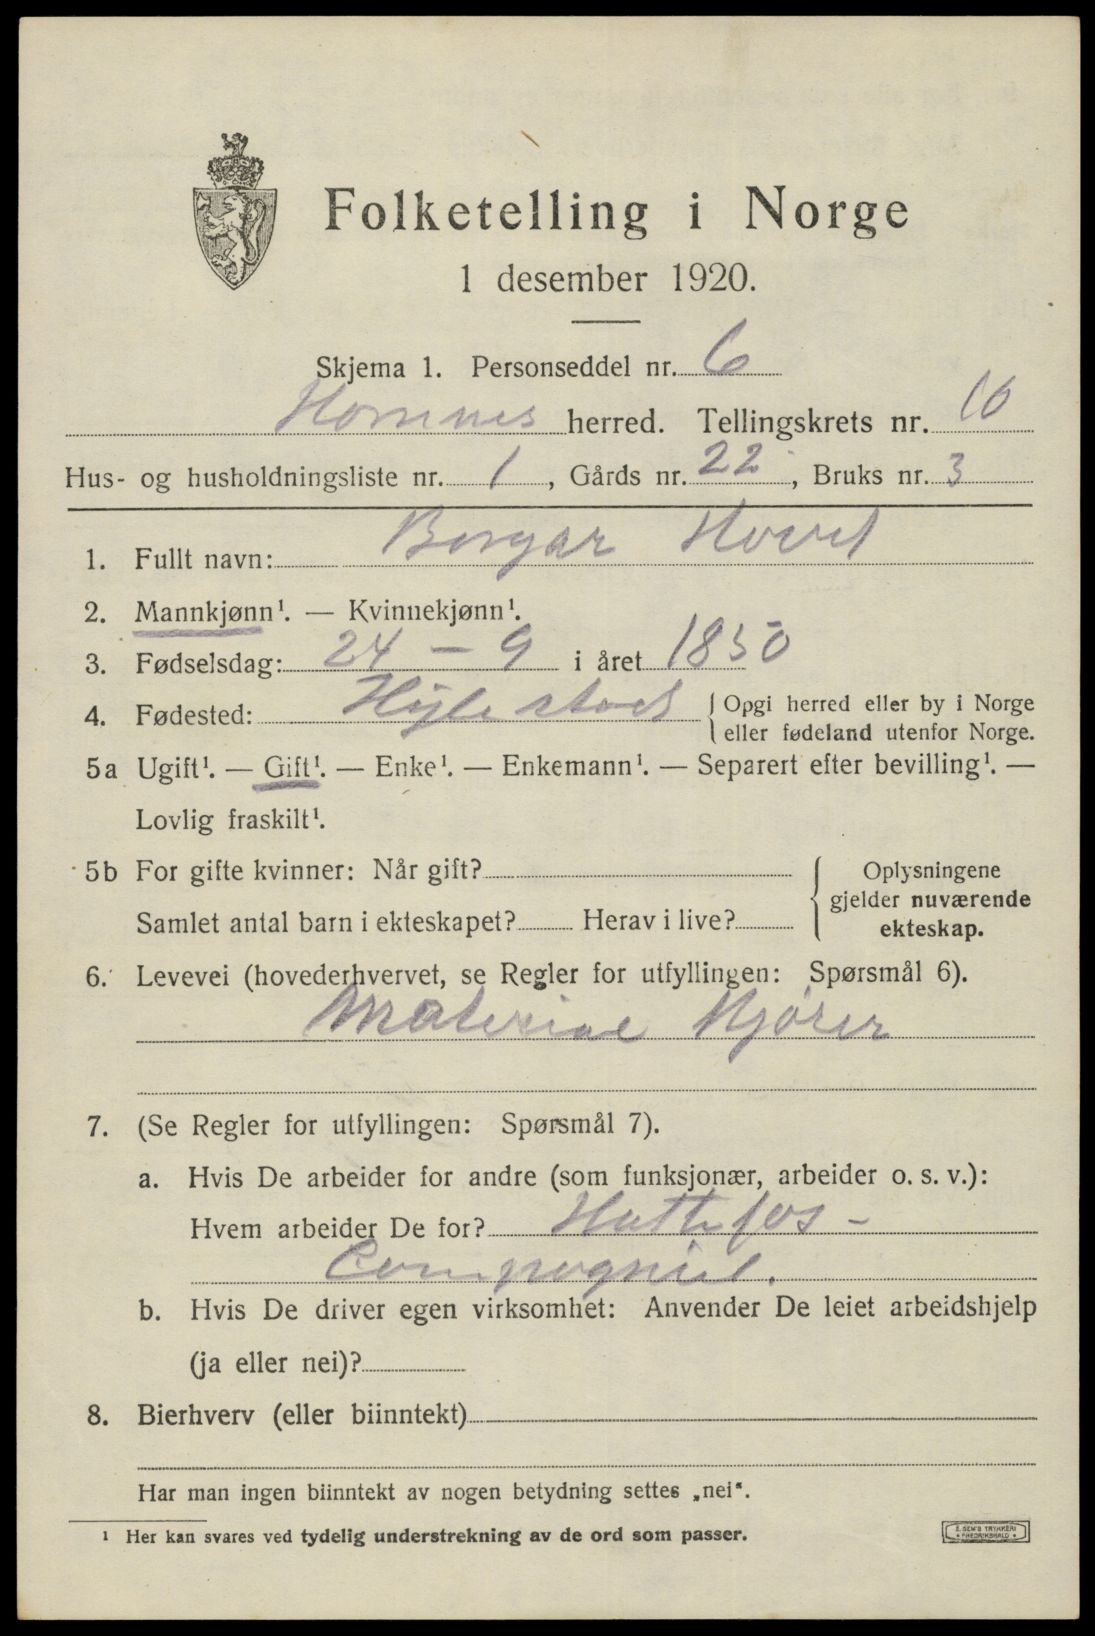 Folketelling i Norge
1 desember 1920.
Skjema 1. Personseddel nr. 6
Hornnes herred. Tellingskrets nr. 10
Hus- og husholdningsliste nr. 1, Gårds nr. 22, Bruks nr. 3
1. Fullt navn: Borgar
2. Mannkjønn¹. — Kvinnekjønn¹.
3. Fødselsdag: 24 - 9 i året 1850
4. Fødested: Hylestad { Opgi herred eller by i Norge
eller fødeland utenfor Norge.
5a Ugift¹. — Gift¹. — Enke¹. — Enkemann¹. — Separert efter bevilling¹. —
Lovlig fraskilt¹.
5b For gifte kvinner: Når gift? { Oplysningene
gjelder nuværende
Samlet antal barn i ekteskapet? Herav i live? ekteskap.
6. Levevei (hovederhvervet, se Regler for utfyllingen: Spørsmål 6).
Materiae Kjører
7. (Se Regler for utfyllingen: Spørsmål 7).
a. Hvis De arbeider for andre (som funksjonær, arbeider o. s. v.):
Hvem arbeider De for? Hattefos -
Compagniel.
b. Hvis De driver egen virksomhet: Anvender De leiet arbeidshjelp
(ja eller nei)?
8. Bierhverv (eller biinntekt)
Har man ingen biinntekt av nogen betydning settes „nei".
¹ Her kan svares ved tydelig understrekning av de ord som passer.
E. SEM'S TRYKKERI
• FREDRIKSHALD •